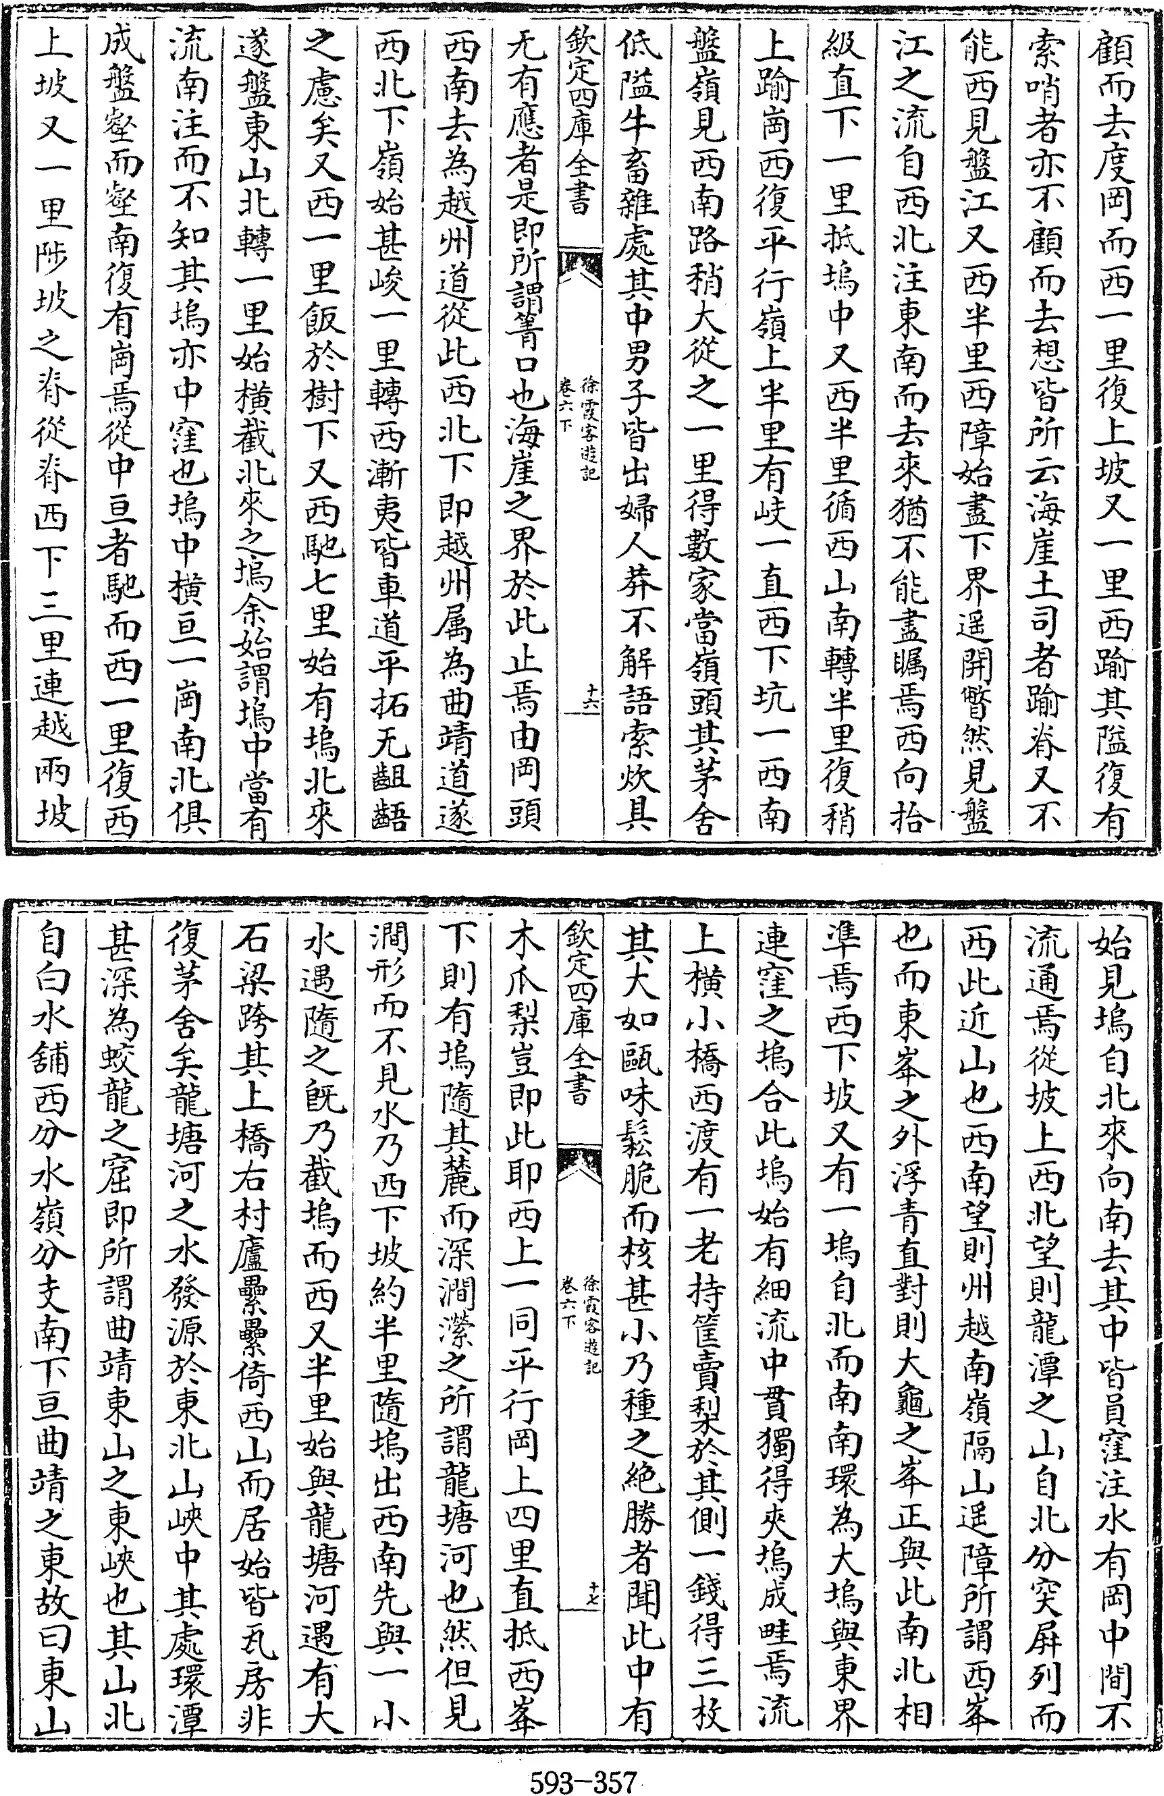 顧而去度岡而西一里復上坡又一里西踰其隘復有
索哨者亦不顧而去想皆所云海崖土司者踰脊又不
能西見盤江又西半里西障始盡下界遥開瞥然見盤
江之流自西北注東南而去來猶不能盡矚焉西向拾
級直下一里抵塢中又西半里循西山南轉半里復稍
上踰崗西復平行嶺上半里有岐一直西下坑一西南
盤嶺見西南路稍大從之一里得數家當嶺頭其茅舍
低隘牛畜雜處其中男子皆出婦人莽不解語索炊具
欽定四庫全書
徐霞客遊記
卷六下
十六
无有應者是即所謂箐口也海崖之界於此止焉由岡頭
西南去為越州道從此西北下即越州属為曲靖道遂
西北下嶺始甚峻一里轉西漸夷皆車道平拓无齟齬
之慮矣又西一里飯於樹下又西馳七里始有塢北來
遂盤東山北轉一里始橫截北來之塢余始謂塢中當有
流南注而不知其塢亦中窪也塢中橫亘一崗南北俱
成盤壑而壑南復有崗焉從中亘者馳而西一里復西
上坡又一里陟坡之脊從脊西下三里連越兩坡
始見塢自北來向南去其中皆員窪注水有岡中間不
流通焉從坡上西北望則龍潭之山自北分突屏列而
西此近山也西南望則州越南嶺隔山遥障所謂西峯
也而東峯之外浮青直對則大龜之峯正與此南北相
準焉西下坡又有一塢自北而南南環為大塢與東界
連窪之塢合此塢始有細流中貫獨得夾塢成畦焉流
上橫小橋西渡有一老持筐賣梨於其側一錢得三枚
其大如甌味鬆脆而核甚小乃種之絶勝者聞此中有
欽定四庫全書
徐霞客遊記
卷六下
十七
木爪梨豈即此耶西上一同平行岡上四里直抵西峯
下則有塢隨其麓而深澗瀠之所謂龍塘河也然但見
澗形而不見水乃西下坡約半里隨塢出西南先與一小
水遇隨之旣乃截塢而西又半里始與龍塘河遇有大
石梁跨其上橋右村廬纍纍倚西山而居始皆瓦房非
復茅舍矣龍塘河之水發源於東北山峽中其處環潭
甚深為蛟龍之窟即所謂曲靖東山之東峽也其山北
自白水舖西分水嶺分支南下亘曲靖之東故曰東山
593-357